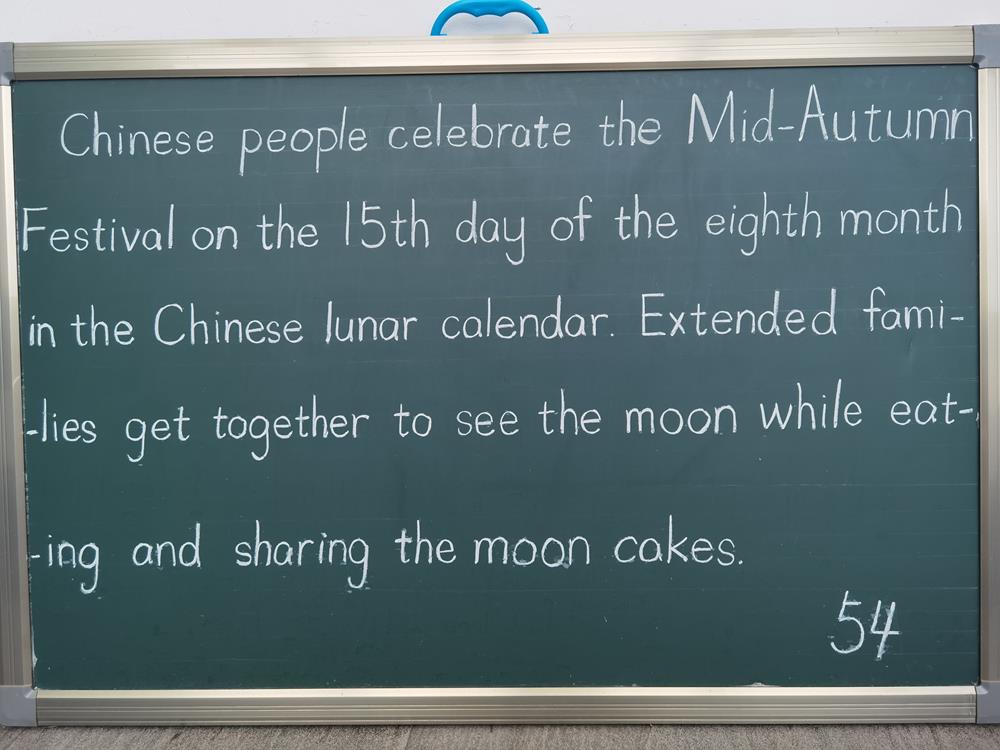 Chinese people celebrate the Mid-Autumn
Festival on the 15th day of the eighth month
in the Chinese lunar calendar. Extended fami-
-lies get together to see the moon while eat-
-ing and sharing the moon cakes.
54